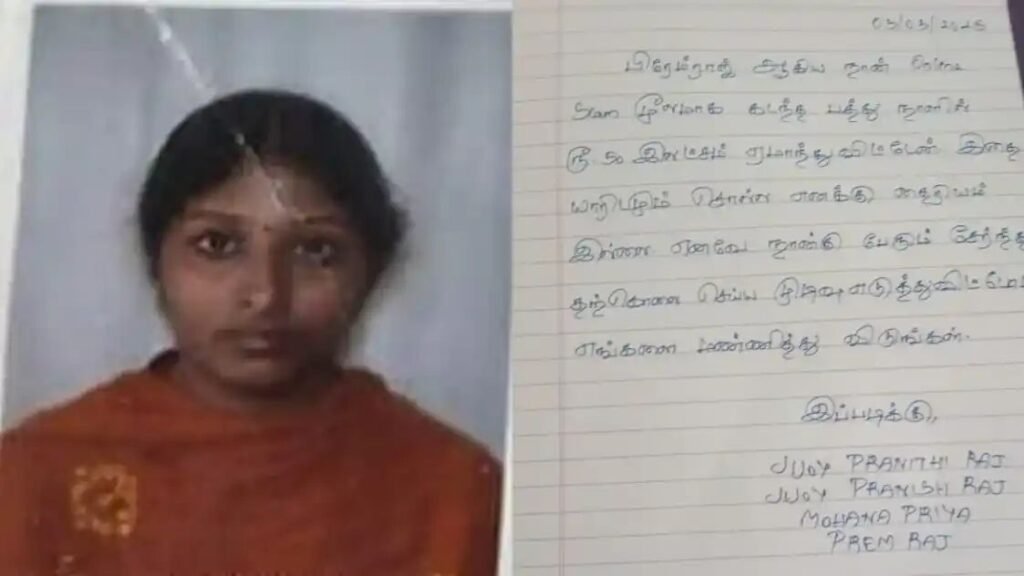 03/03/2025
பிரேம்ராஜ் ஆகிய நான் Online
Scam மூலமாக கடந்த பத்து நாளில்
ரூ 50 இலட்சம் ஏமாந்துவிட்டேன் இதை
யாரிடமும் சொல்ல எனக்கு தைரியம்
இல்லை எனவே நான்கு பேரும் சேர்ந்து
தற்கொலை செய்ய முடிவு எடுத்துவிட்டோம்
எங்களை மன்னித்து விடுங்கள்.
இப்படிக்கு,
JUOY PRANITHI RAJ
JUOY PRANISH RAJ
MOHANA PRIYA
PREM RAJ